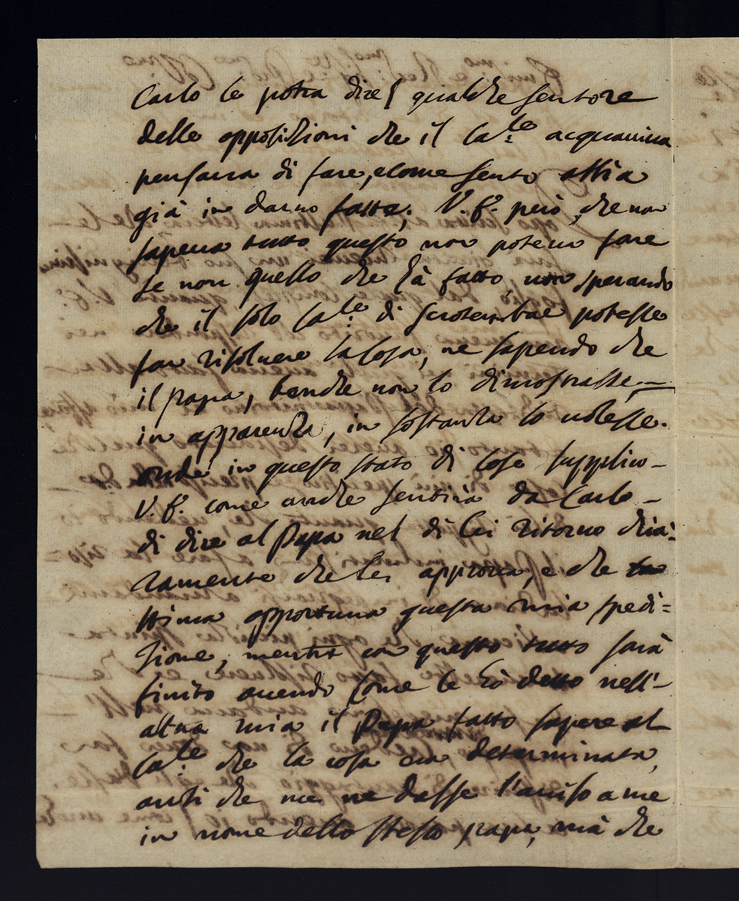 Carlo le potrà dire qualche sentore
delle opposizioni che il Ca.le acquaviva
pensava di fare, e come sento abbia
già in darno fatte. V.E. però, che non
sapeva tutto questo non poteva fare
se non quello che hà fatto, non sperando
che il solo Ca.le di potesse
far risolvere la Cosa, ne sapendo che
il papa, benche non lo dimostrasse,
in apparenza, in sostanza lo volesse.
onde in questo stato di Cose supplico
V.E. come anche sentirà da Carlo
di dire al Papa nel di lei ritorno chia:
ramente che lei approva, e che
stima opportuna questa mia spedi:
zione, mentre con questo tutto sarà
finito avendo Come le hò detto nell'
altra mia il Papa fatto sapere al
Ca.le che la cosa era determinata,
anzi che me ne dasse l'aviso a me
in nome dello stesso papa, mà che